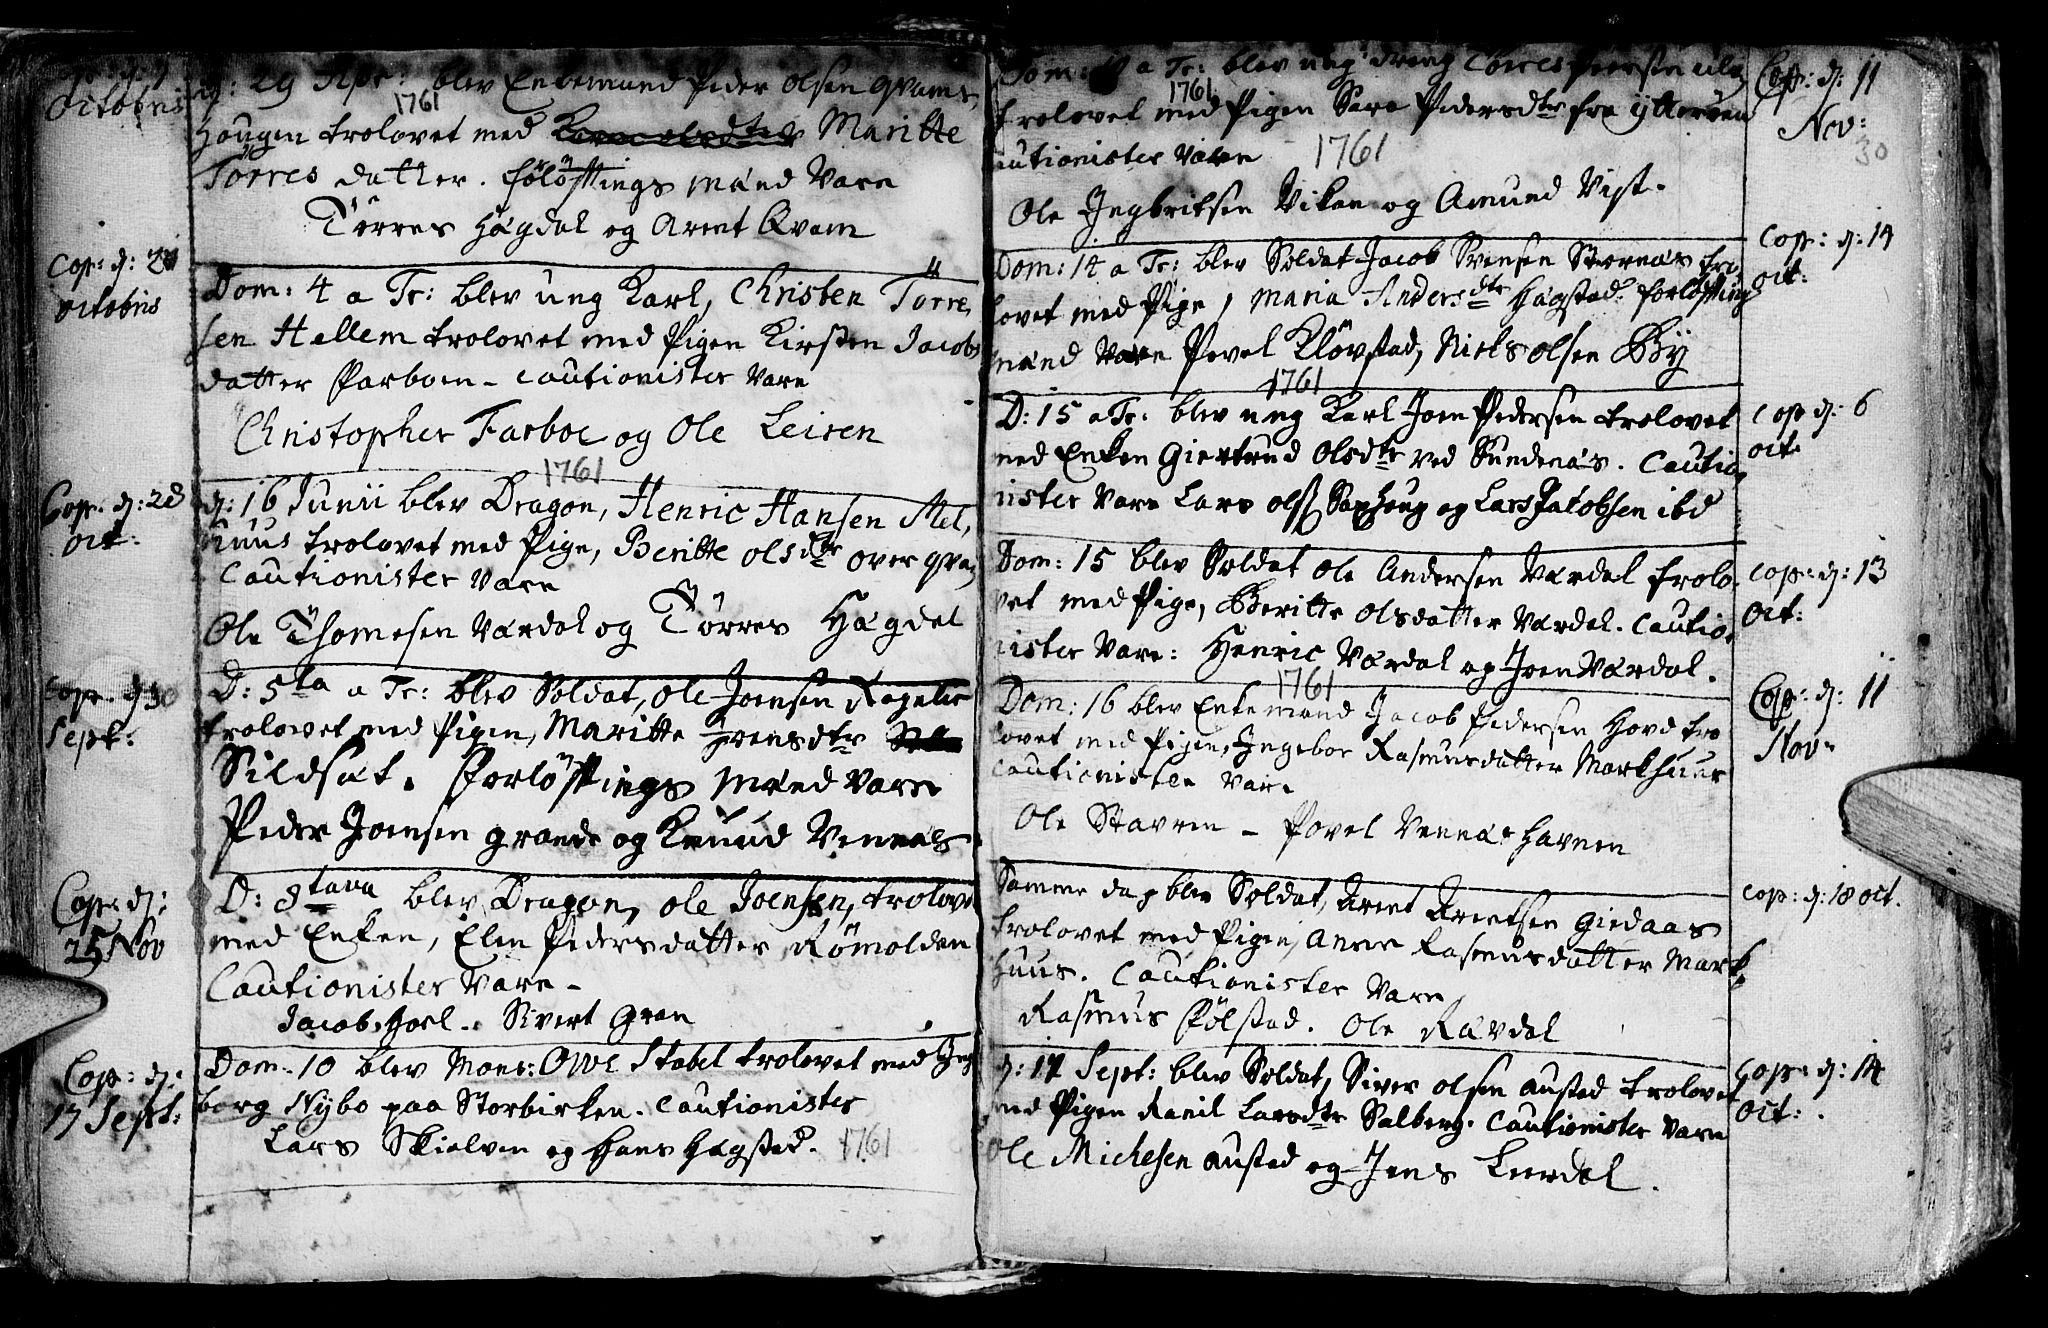 Octobris
d: 29 Apr: blev Enkemand Peder Olsen qvams
1761
Hougen trolovet med Maritte
Törres datter. Følöftings mænd vare
Törres Hagdal og Arent Qvam
Cop: d:
octobris
Dom: 4 a Tr: blev ung Karl, Christen Törre
sen Hellem trolovet med Pigen Kirsten Jacobs
datter Farboen - Cautionister vare
Christopher Farboe og Ole Leiren
1761
Cop: d: 28
oct:
d: 16 Junii blev Dragon, Henric Hansen Mel,
huus trolovet med Pige, Beritte olsdtr over
Cautionister vare
Ole Thomesen Værdal og Törres Hagdal
Cop: d 30
Sept:
D: 5ta a Tr: blev Soldat, Ole Joensen
trolovet med Pigen, Maritte
Sildsæt. Forlöftings mænd vare
Peder Joensen grande og Knuud Vennæs
Cop: d:
25 Nov
D: 8tava blev Dragon, ole Joensen, trolovet
med Enken, Elen Pedersdatter Römolden
Cautionister vare -
Jacob Joel. Sivert Gran
Cop: d:
17 Sept:
Dom: 10 blev Mons: Owe Stabel trolovet med Inge
borg Nybo paa Storbirken. Cautionister
Lars Skielven og Hans Hagstad. 1761
Dom: a Tr: blev ung dreng Torres
1761
trolovet med Pigen Sara Pedersdtr fra
Cautionister vare 1761
Ole Ingbritsen Viken og Amund Vist.
Cop: d: 11
Nov:
30
Dom: 14 a Tr: blev Soldat Jacob Svensen Stornæs tro
lovet med Pige, Maria Andersdtr Hagstad. forlöftings
mænd vare Povel Klövstad, Niels olsen By
Cop: d: 14
oct:
1761
D: 15 a Tr: blev ung Karl Joen Pedersen trolovet
med Enken Giertrud Olsdtr ved Sundenæs. Cautio
nister vare Lars olss Saxhoug og Lars Jacobsen ibd
Cop d: 6
oct
Dom: 15 blev Soldat ole Andersen Værdal trolo
vet med Pige, Beritte olsdatter Værdal. Cautio
nister vare: Henric Værdal og Joen Værdal.
Cop: d: 13
Oct:
1761
Dom: 16 blev Enkemand Jacob Pedersen Hovd tro
lovet med Pigen, Ingebor Rasmusdatter Markhuus
Cautionister vare
Ole Stavren - Povel Vennæs Havnen
Cop: d: 11
Nov:
Samme dag blev Soldat, Arent Arentsen Giedaas
trolovet med Pigen, Anne Rasmusdatter Mark
huus. Cautionister vare
Rasmus Fölstad. Ole Ravdal
Cop: d: 18 oct.
d: 17 Sept: blev Soldat, Siver olsen austad trolovet
med Pigen Ranil Larsdtr Salberg. Cautionister vare
Ole Michelsen austad og Jens Leirdal.
Cop: d: 14
Oct: